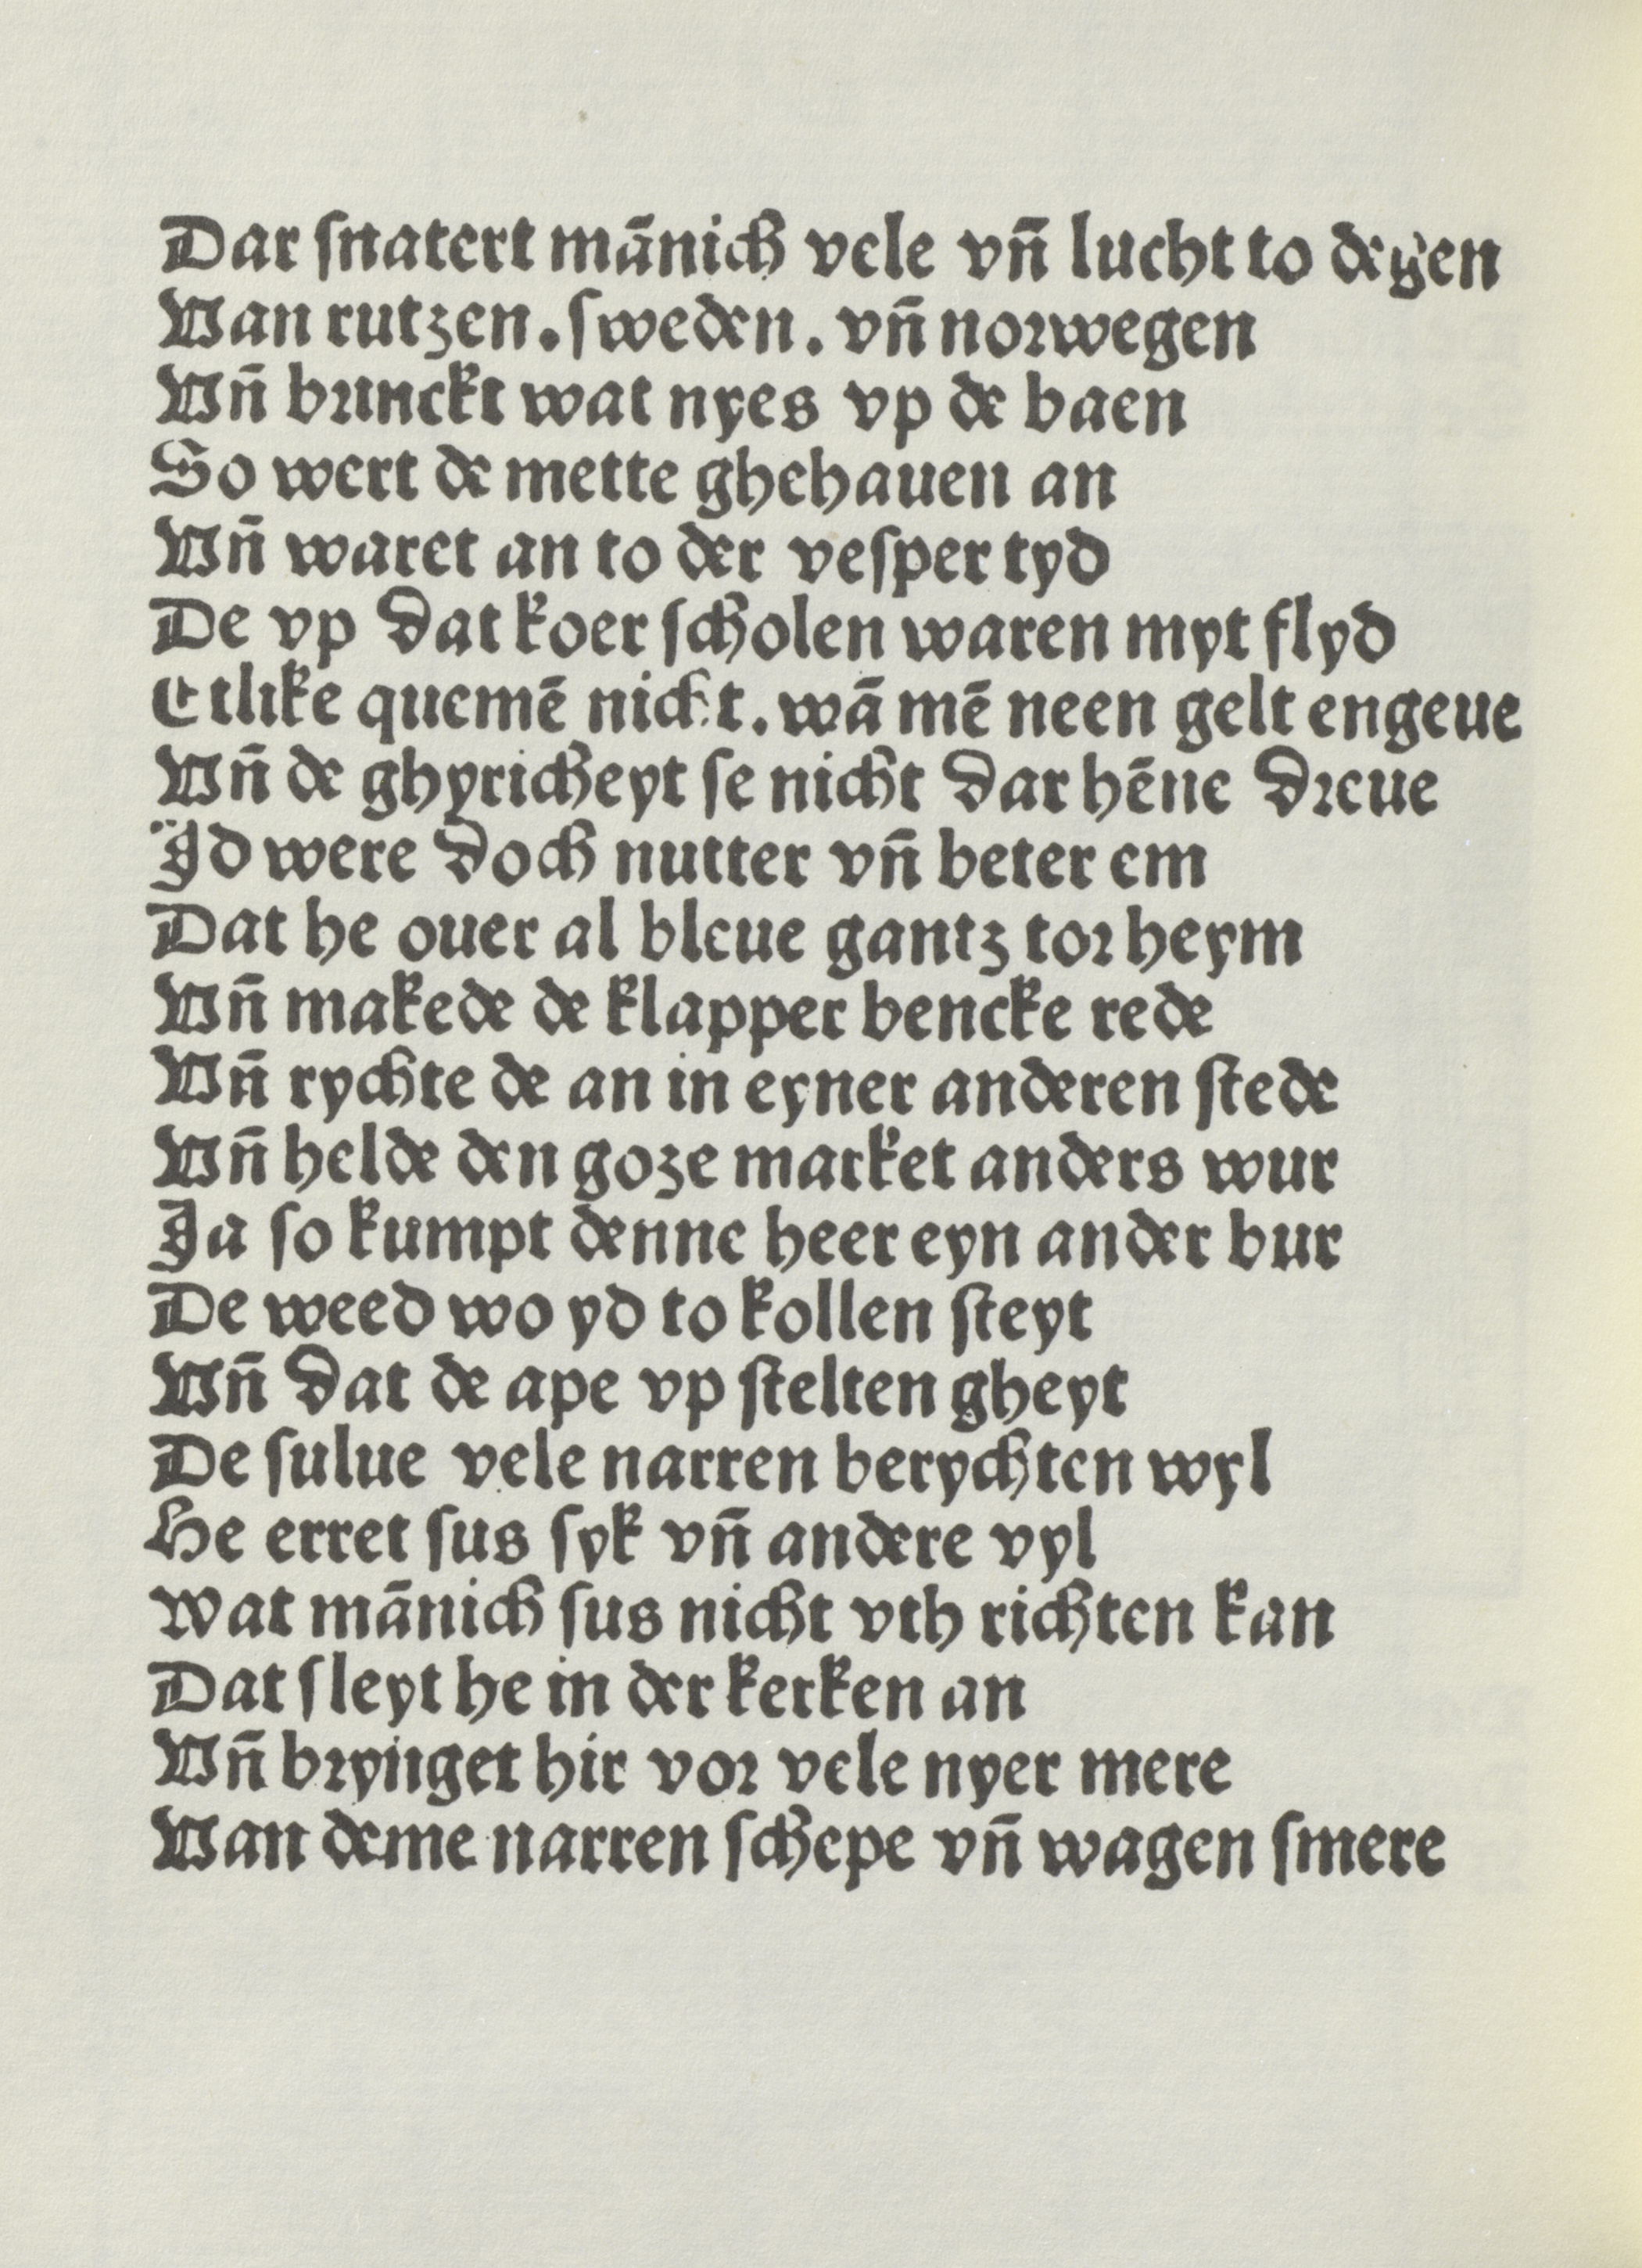 Dar ſnatert mãnich vele vñ lucht to deyen
Van rutzen. ſweden. vñ norwegen
Vñ brinckt wat nyes vp de baen
So wert de mette ghehauen an
Vñ waret an to der veſper tyd
De vp dat koer ſcholen waren myt flyd
Etlike quemẽ nicht. wã mẽ neen gelt engeue
Vñ de ghyricheyt ſe nicht dar hẽne dreue
Jd were doch nutter vñ beter em
Dat he ouer al bleue gantz tor heym
Vñ makede de klapper bencke rede
Vñ rychte de an in eyner anderen ſtede
Vñ helde den goze market anders wur
Ja ſo kumpt denne heer eyn ander bur
De weed wo yd to kollen ſteyt
Vñ dat de ape vp ſtelten gheyt
De ſulue vele narren berychten wyl
He erret ſus ſyk vñ andere vyl
Wat mãnich ſus nicht vth richten kan
Dat ſleyt he in der kerken an
Vñ brynget hir vor vele nyer mere
Van deme narren ſchepe vñ wagen ſmere